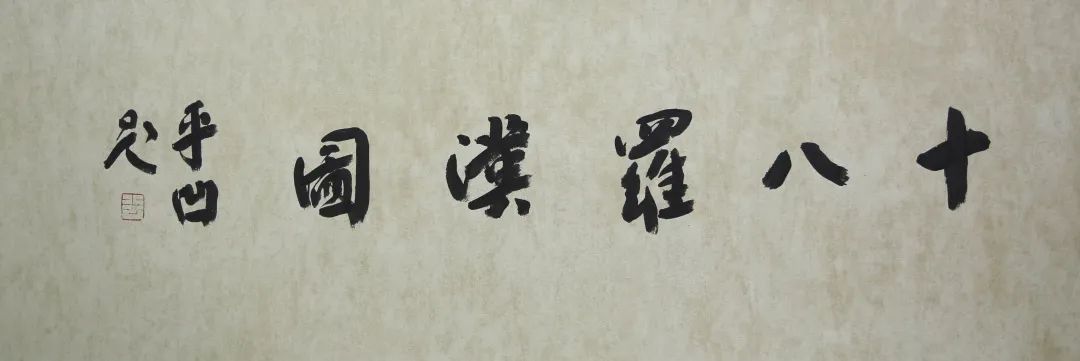 十八羅漢圖
平凹